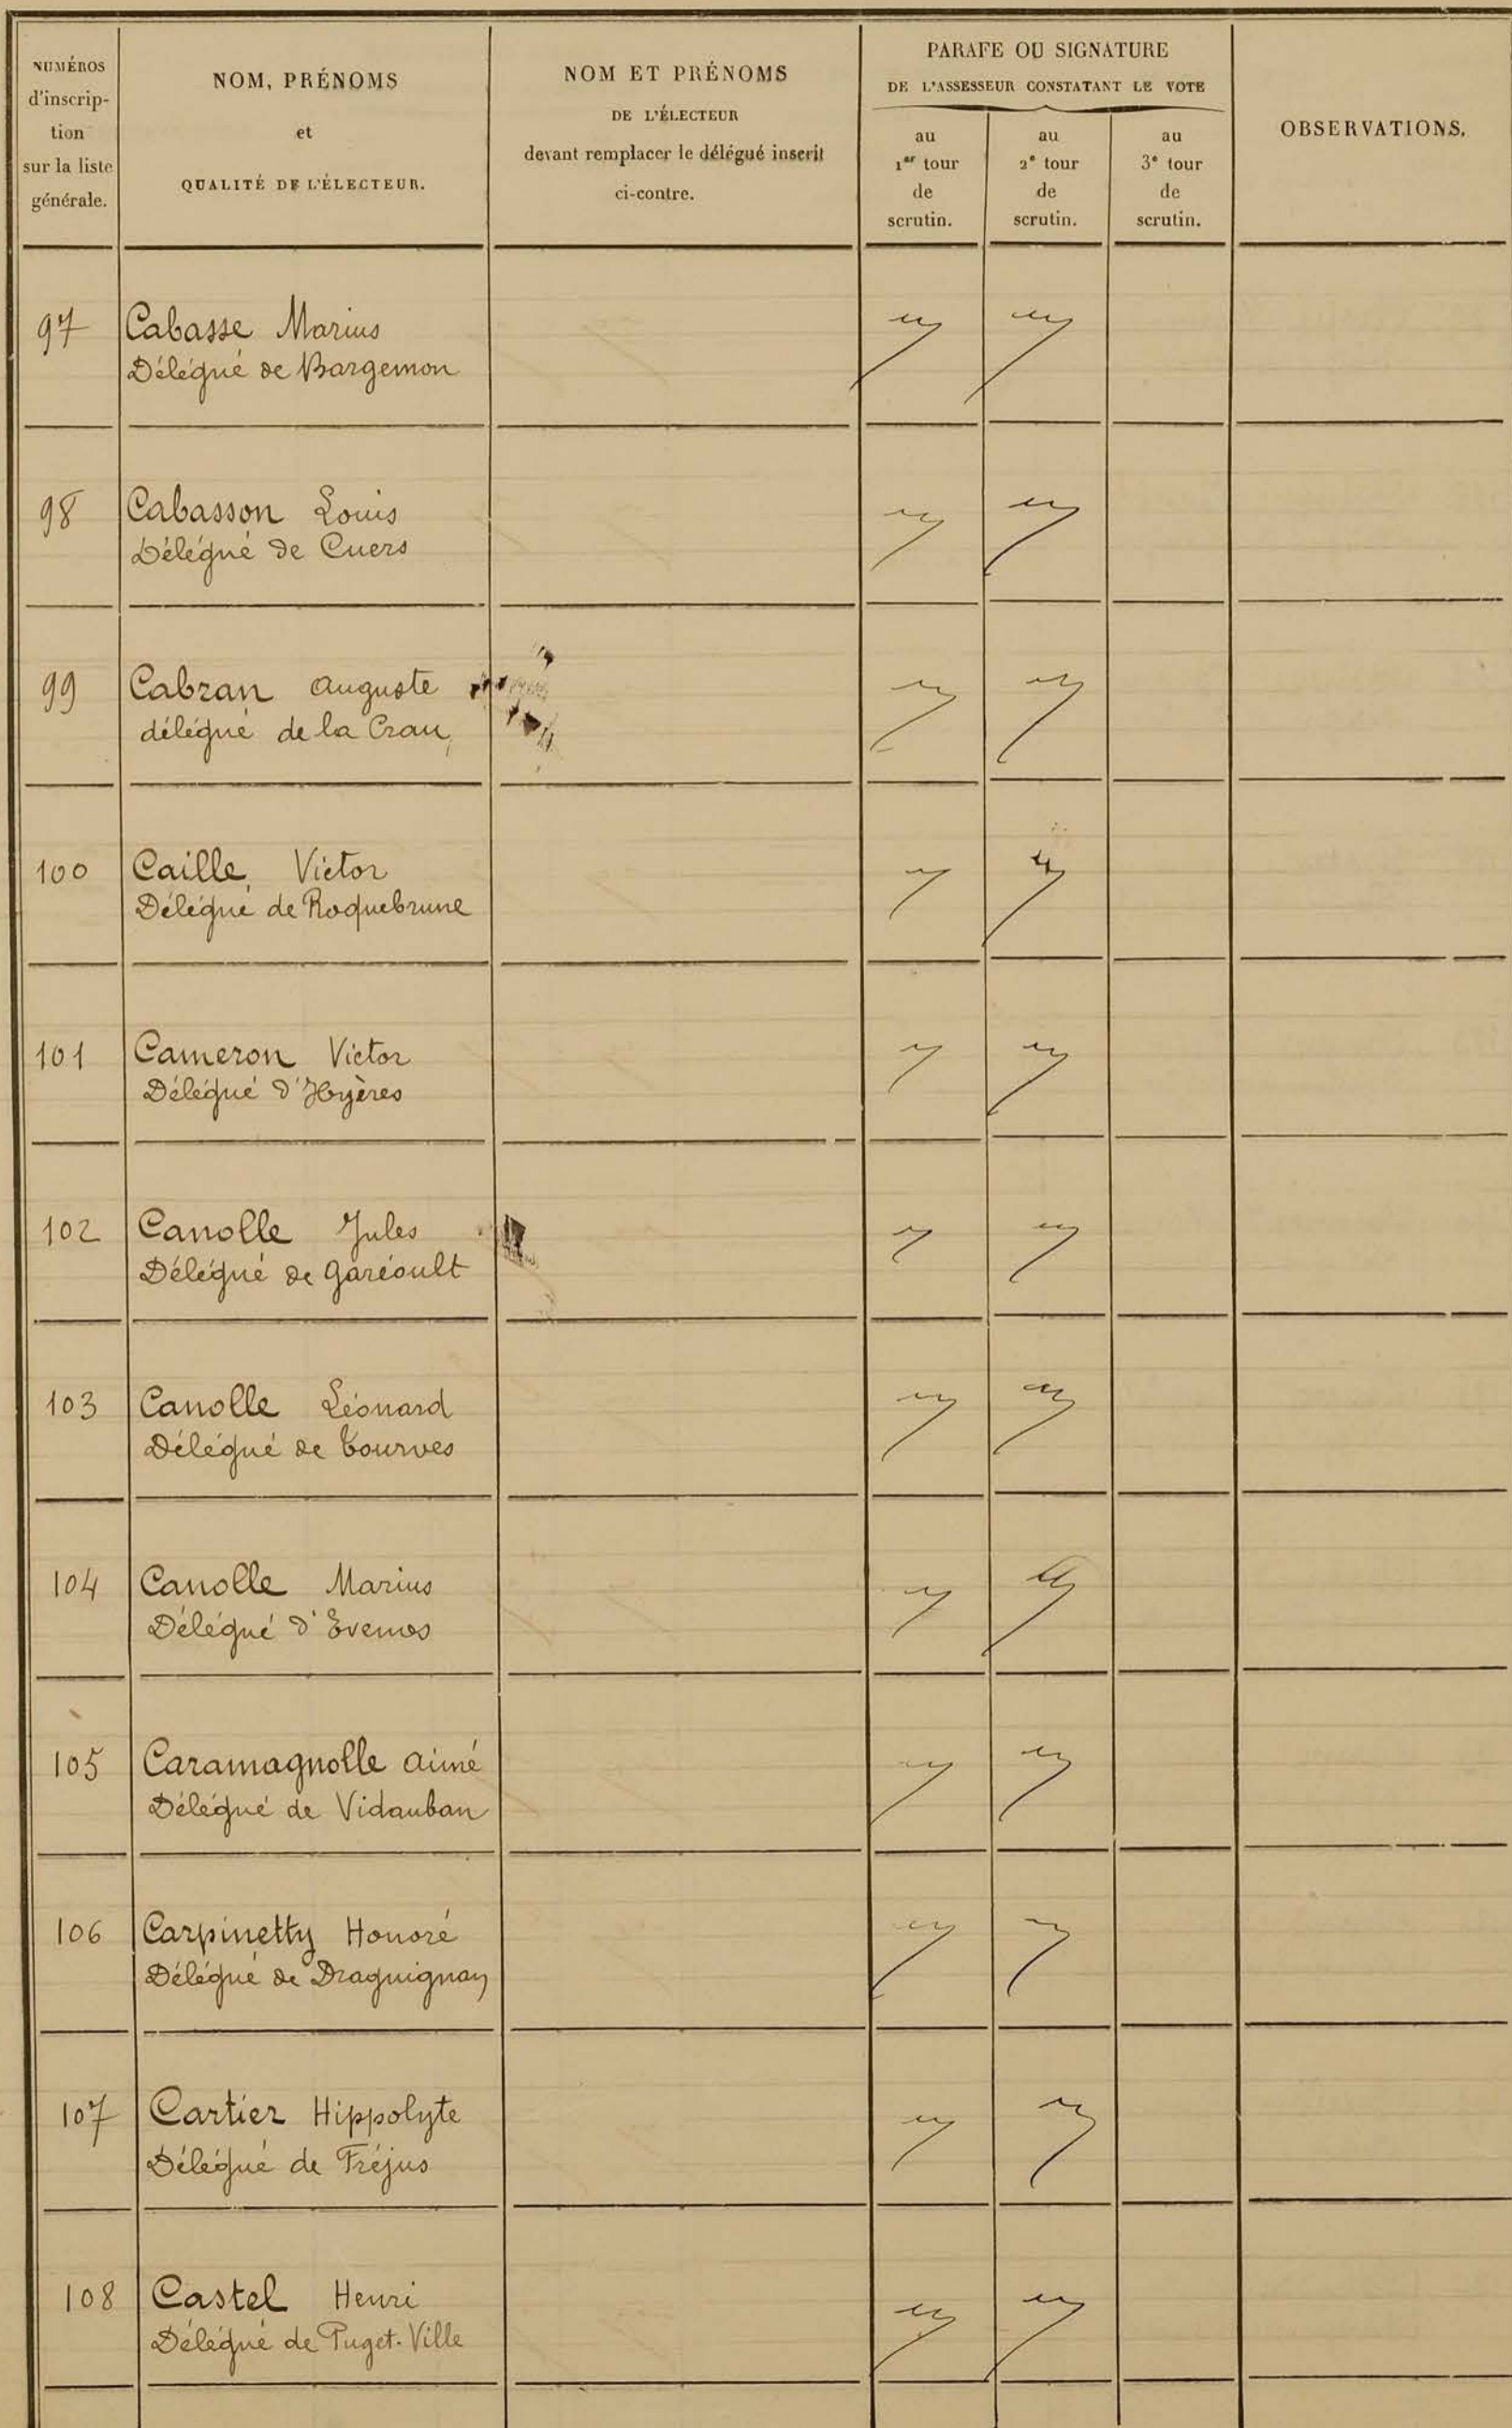 NUMÉROS
d'inscrip-
tion
sur la liste
générale.
NOM, PRÉNOMS
et
QUALITÉ DE L'ÉLECTEUR.
NOM ET PRÉNOMS
DE L'ÉLECTEUR
devant remplacer le délégué inscrit
ci-contre.
PARAFE OU SIGNATURE
DE L'ASSESSEUR CONSTATANT LE VOTE
au
1er tour
de
scrutin.
au
2e tour
de
scrutin.
au
3e tour
de
scrutin.
OBSERVATIONS.
97 Cabasse Marius
Délégué de Bargemon
98 Cabasson Louis
Délégué de Cuers
99 Cabran Auguste
délégué de la Crau
100 Caille Victor
Délégué de Roquebrune
101 Cameron Victor
Délégué d'Hyères
102 Canolle Jules
Délégué de Garéoult
103 Canolle Léonard
Délégué de Tourves
104 Canolle Marius
Délégué d'Evenos
105 Caramagnolle Aimé
Délégué de Vidauban
106 Carpinetty Honoré
Délégué de Draguignan
107 Cartier Hippolyte
Délégué de Fréjus
108 Castel Henri
Délégué de Puget-Ville